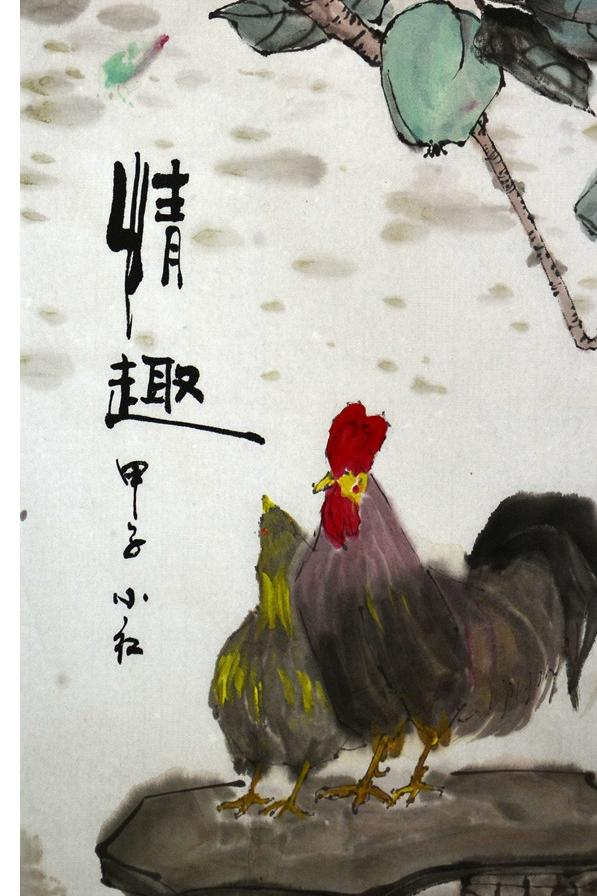 情趣
甲子小红